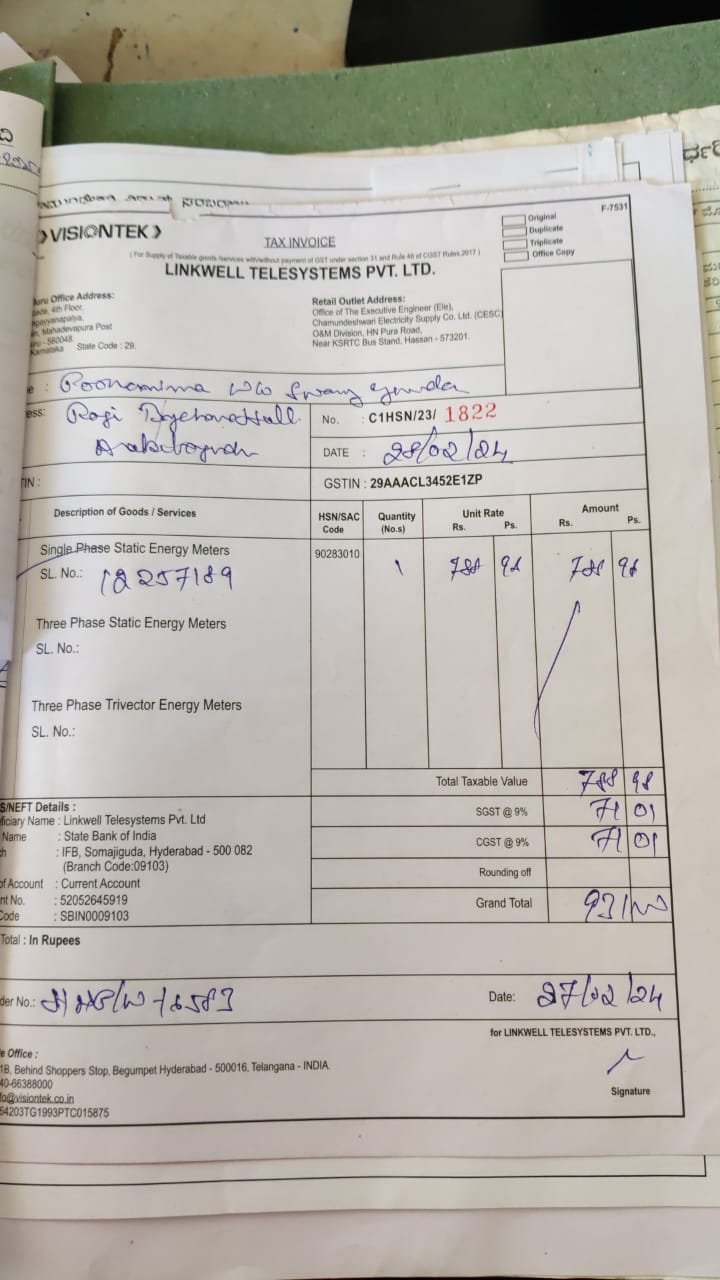 VISIONTEK
F-7531
TAX INVOICE
Original
Duplicate
Triplicate
Office Copy
( For Supply of Taxable goods /services with/without payment of GST under section 31 and Rule 46 of CGST Rules.2017 )
LINKWELL TELESYSTEMS PVT. LTD.
Office Address:
4th Floor,
Mahadevapura Post
560048
Karnataka State Code : 29.
Retail Outlet Address:
Office of The Executive Engineer (Ele),
Chamundeshwari Electricity Supply Co. Ltd. (CESC)
O&M Division, HN Pura Road,
Near KSRTC Bus Stand, Hassan - 573201.
No. : C1HSN/23/ 1822
DATE : 28/02/24
GSTIN : 29AAACL3452E1ZP
Description of Goods / Services
HSN/SAC Code
Quantity (No.s)
Unit Rate Rs. Ps.
Amount Rs. Ps.
Single Phase Static Energy Meters
90283010 1 788 98 788 98
SL. No.: 12257189
Three Phase Static Energy Meters
SL. No.:
Three Phase Trivector Energy Meters
SL. No.:
Total Taxable Value 788 98
SGST @ 9% 71 01
CGST @ 9% 71 01
Rounding off
Grand Total 931/00
S/NEFT Details :
ficiary Name : Linkwell Telesystems Pvt. Ltd
Name : State Bank of India
: IFB, Somajiguda, Hyderabad - 500 082
(Branch Code:09103)
of Account : Current Account
nt No. : 52052645919
Code : SBIN0009103
Total : In Rupees
der No.:
Date: 27/02/24
for LINKWELL TELESYSTEMS PVT. LTD.,
Signature
e Office :
1B, Behind Shoppers Stop, Begumpet Hyderabad - 500016, Telangana - INDIA.
40-66388000
fo@visiontek.co.in
64203TG1993PTC015875